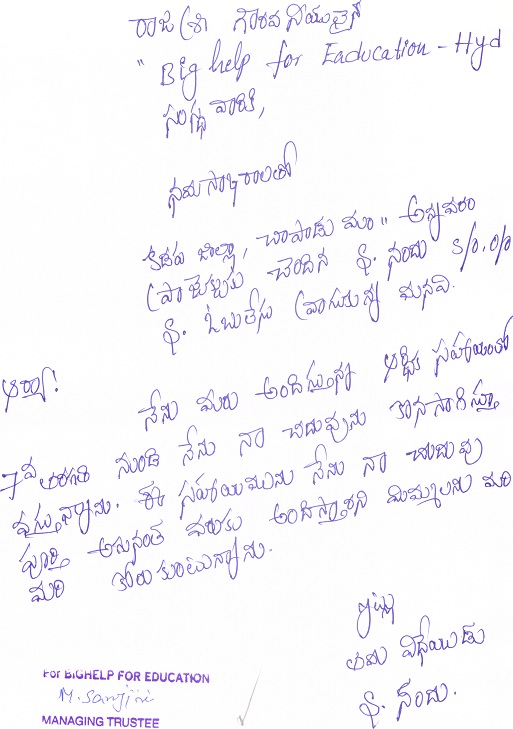 రాజశ్రీ గౌరవనీయులైన
"Big help for Eaducation - Hyd
సంస్థ వారికి,
నమస్కారాలతో
కడప జిల్లా, చాపాడు మం" అన్నవరం
చెందిన కె. నందు S/o,
కె. ఓబులేసు వ్రాయునున్న మనవి.
ఆర్యా!
నేను మీరు అందిస్తున్న ఆర్థిక సహాయంతో
7వ తరగతి నుండి నేను నా చదువును కొనసాగిస్తూ
వస్తున్నాను. ఈ సహాయమును నేను నా చదువు
పూర్తి అయినంత వరకు అందిస్తారని మిమ్మలను మరి
మరి కోరుకుంటున్నాను.
ఇట్లు
తమ విధేయుడు
కె. నందు.
For BIGHELP FOR EDUCATION
M. Sanjini
MANAGING TRUSTEE